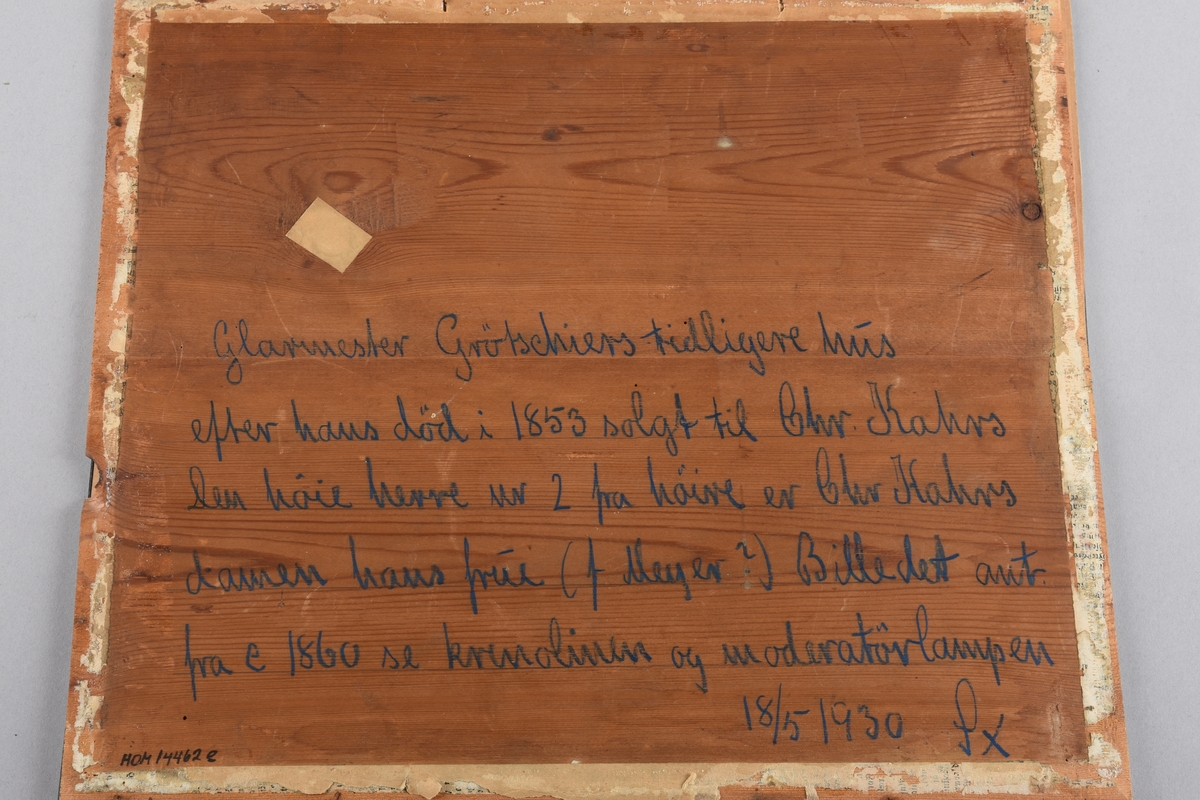 Glarmester Grötschiers tidligere hus
efter hans död i 1853 solgt til Chr. Kahrs
Den höie herre nr 2 fra höire er Chr Kahrs
damen hans frue (f Meyer?) Billedet ant.
fra c 1860 se krenolinen og moderatörlampen
18/5 1930
HOM 14462 e